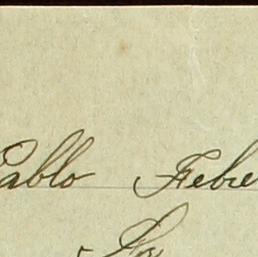 Pablo Febre